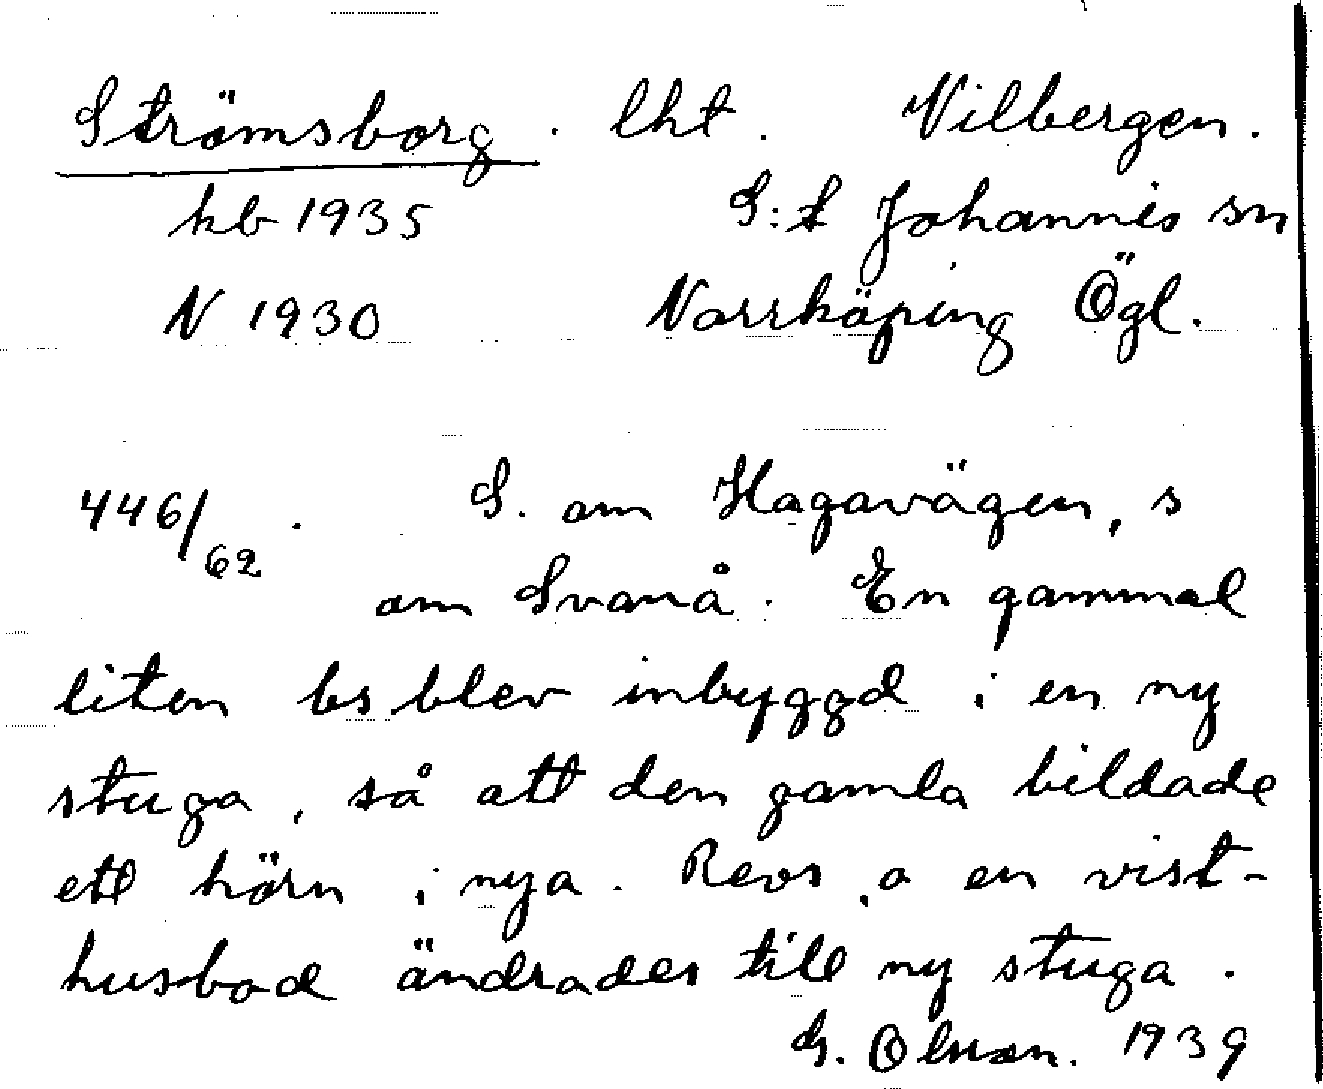 Strömsborg. lht. Vilbergen.
kb 1935 S:t Johannis sn
N 1930 Norrköping Ögl.
446/62. S. om Hagavägen, s
om Svanå. En gammal
liten bs blev inbyggd i en ny
stuga, så att den gamla bildade
ett hörn i nya. Revs, o en vist-
husbod ändrades till ny stuga.
G. Olsson. 1939